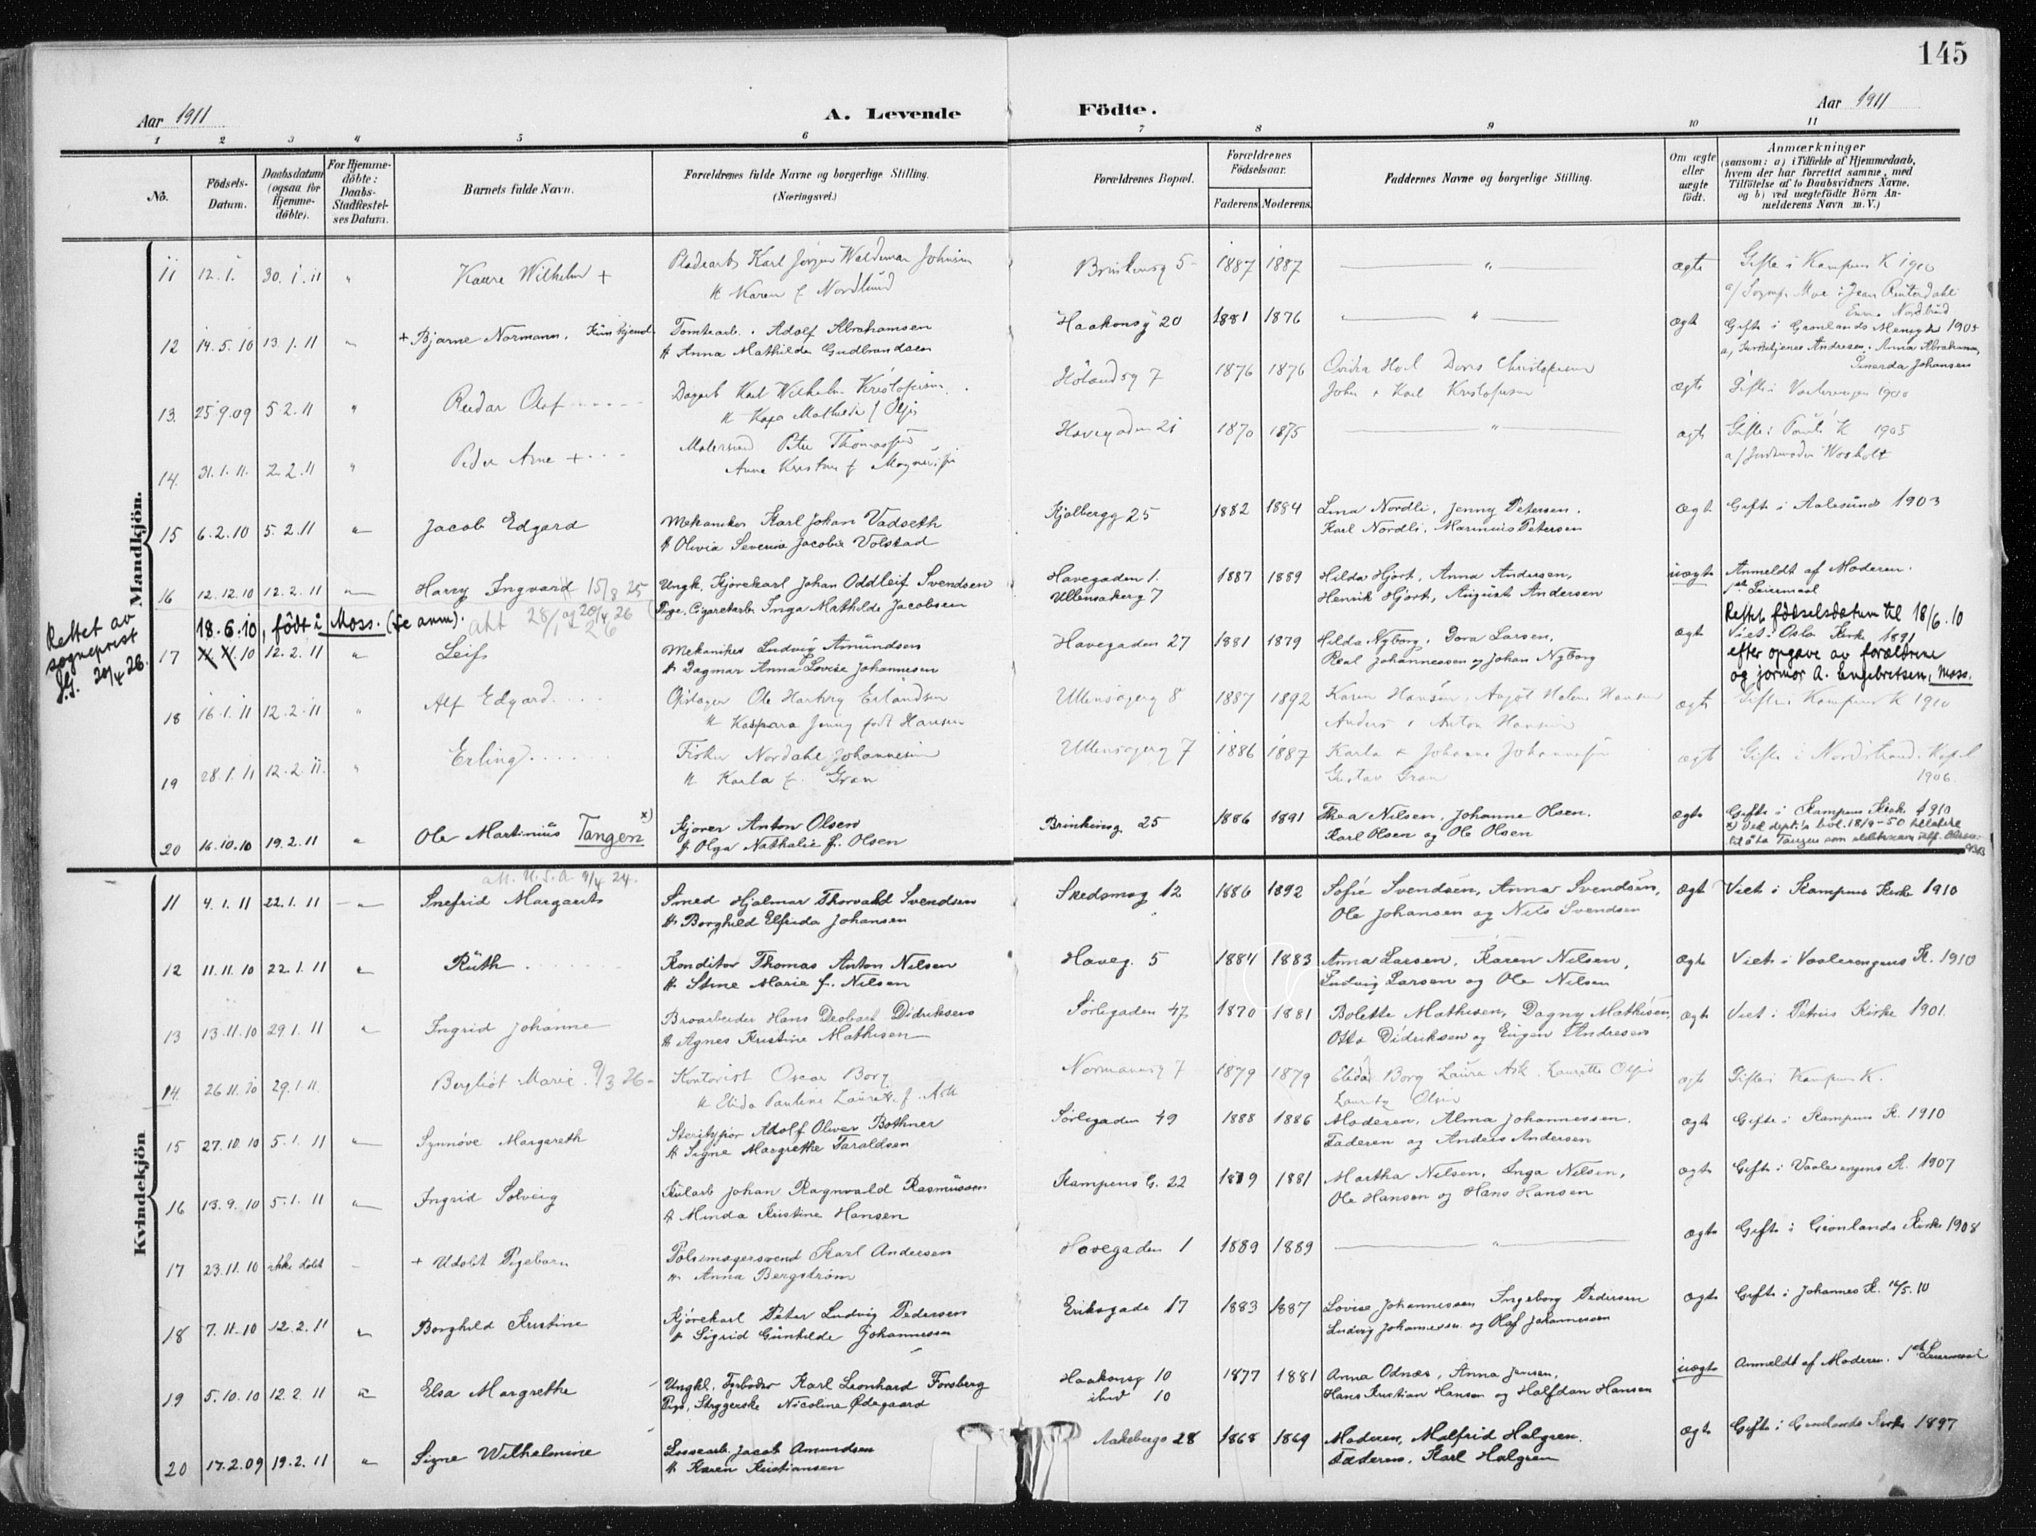 145
Aar 1911
A. Levende
Födte.
Aar 1911
1 2 3 4 5 6 7 8 9 10 11
No.
Födsels-Datum.
Daabsdatum (ogsaa for Hjemme-döbte).
For Hjemme-döbte: Daabs-Stadfæstel-ses Datum.
Barnets fulde Navn.
Forældrenes fulde Navne og borgerlige Stilling. (Næringsvei.)
Forældrenes Bopæl.
Forældrenes Födselsaar.
Faderens Moderens
Faddernes Navne og borgerlige Stilling.
Om ægte eller uægte födt.
Anmærkninger
(saasom: a) i Tilfælde af Hjemmedaab, hvem der har forrettet samme, med Tilföielse af to Daabsvidners Navne, og b) ved uægtefödte Börn An-melderens Navn m. V.)
Mandkjön.
11 12.1. 30.1.11 " Kaare Wilhelm + Karl Jörgen Waldemar Johnsen 5 1887 1887 " ægte Gifte i Kampens K 1910
Karen f. Nordlund
12 14.5.10 13.1.11 " + Bjarne Normann. Tomtearb. Adolf Abrahamsen Haakonsg 20 1881 1876 " ægte Gifte i Grønlands Menighed
Anna Mathilde Gudbrandsen Anna Abrahamsen, Johansen
13. 25.9.09 5.2.11 " Reidar Olaf Karl Wilhelm Kristofersen Hölandsg 7 1876 1876 Christofersen ægte Gifte i Vaalerengen 1900
John & Karl Kristofersen
14. 31.1.11. 2.2.11 " Peder Arne + Malersvend Peter Thomassen Havegaden 21 1870 1875 " ægte Gifte i K 1905
15 6.2.10 5.2.11 " Jacob Edgard Mekaniker Karl Johan Vadseth Kjølbergg 25 1882 1884 Lina Nordli, Jenny Petersen. Ægte Gifte i Aalesund 1903
& Olivia Severine Jacobie Volstad Karl Nordli, Marinius Petersen
16 12.12.10 12.2.11 " Harry Ingvard 15/8 25 Ungk. Kjørekarl Johan Oddleif Svendsen Havegaden 1. 1887 1889 Hilda Hjort, Anna Andersen, uægte Anmeldt af Moderen.
Pige, Cigaretarb. Inga Mathilde Jacobsen Ullensakerg 7 Henrik Hjort, August Andersen Leiermaal
Rettet av sogneprest 20/4 26.
18.6.10, født i Moss. (se anm). Rettet fødselsdatum til 18/6.10
17 10 12.2.11 " Leif Mekaniker Ludvig Amundsen Havegaden 27 1881 1879 Hilda Nyborg, Dora Larsen, ægte Viet i Oslo Kirke 1891
& Dagmar Anna Lovise Johannesen Johannessen og Johan Nyborg efter opgave av forældrene
og jormor A. Engebretsen, Moss.
18 16.1.11 12.2.11 " Alf Edgard Ole Hartvig Erlandsen Ullensagerg 8 1887 1892 Karen Hansen, Hansen ægte Gifte i Kampens K 1910
Kaspara Jenny født Hansen Anders & Anton Hansen
19 28.1.11 12.2.11. " Erling Fisker Nordahl Johannesen Ullensagerg 7 1886 1887 Karla & Johanne Johannesen ægte Gifte i Nordstrand Kapel
Karla f. Gran Gustav Gran 1906.
20 16.10.10 19.2.11 " Ole Martinius Tangen x) Kjører Anton Olsen Brinkensg 25 1886 1891 Thea Nilsen, Johanne Olsen. ægte Gifte i Kampens Kirke 1910
& Olga Nathalie f. Olsen Karl Olsen og Ole Olsen
Kvindekjön
att. U.S.A. 9/4 24.
11 4.1.11 22.1.11 " Snefrid Margarete Smed Hjalmar Thorvald Svendsen Skedsmog 12 1886 1892 Sofie Svendsen, Anna Svendsen, ægte Viet i Kampens Kirke 1910
& Borghild Elfrida Johansen Ole Johansen og Nils Svendsen
12 11.11.10 22.1.11 " Ruth Konditor Thomas Anton Nilsen Haveg. 5 1884 1883 Anna Larsen, Karen Nilsen, ægte Viet i Vaalerengens K. 1910
& Stine Marie f. Nilsen Ludvig Larsen og Ole Nilsen
13 13.11.10 29.1.11 " Ingrid Johanne Broarbeider Hans Deobart Didriksen Sørlegaden 47 1870 1881 Bolette Mathisen, Dagny Mathisen, ægte Viet i Petrus Kirke 1901.
& Agnes Kristine Mathisen Otto Didriksen og Eugen Andresen
14. 26.11.10 29.1.11. Bergliot Marie. 9/3 26 Kontorist Oscar Borg Normannsg 7 1879 1879 Elida Borg Laura Ask ægte Gifte i Kampens K.
Elida Pauline f. Ask Lauritz Olsen
15 27.10.10 5.1.11 " Synnøve Margareth Adolf Oliver Bothner Sørlegaden 49 1888 1886 Moderen, Alma Johannessen. ægte Gifte i Kampens K. 1910
& Signe Margrethe Taraldsen Faderen og Anders Andersen
16 13.9.10 5.1.11 " Ingrid Solveig Johan Ragnvald Rasmussen Kampens G. 22 1879 1881 Martha Nilsen, Inga Nilsen, ægte Gifte i Vaalerengens K. 1907
& Minda Kristine Hansen Ole Hansen og Hans Hansen
17 23.11.10 ikke döbt + Udöbt Pigebarn Pølsemagersvend Karl Andersen Havegaden 1 1889 1889 " ægte Gifte i Grønlands Kirke 1908
Anna Bergstrøm
18 7.11.10 12.2.11 " Borghild Kristine Kjørekarl Peter Ludvig Pedersen Eriksgade 17 1883 1887 Lovise Johannessen Ingeborg Pedersen ægte Gifte i Johannes K. 16/5.10
& Sigrid Gunhilde Johannessen Ludvig Johannessen og Olaf Johannessen
19 5.10.10 12.2.11 " Elsa Margrethe Ungkl. Karl Leonhard Forsberg Haakonsg 10 1877 1881 Anna Odnæs, Anna Jensen, uægte Anmeldt af Moderen. 1ste Leiermaal
Pige, Strygerske Nicoline Ødegaard ibid 10 Hans Kristian Hansen og Halfdan Hansen
20 17.2.09 19.2.11 " Signe Wilhelmine Lossearb. Jacob Amundsen Aakebergv 28 1868 1869 Moderen, Malfrid Halgren. ægte Gifte i Grønlands Kirke 1897
& Karen Kristiansen Faderen, Karl Halgren